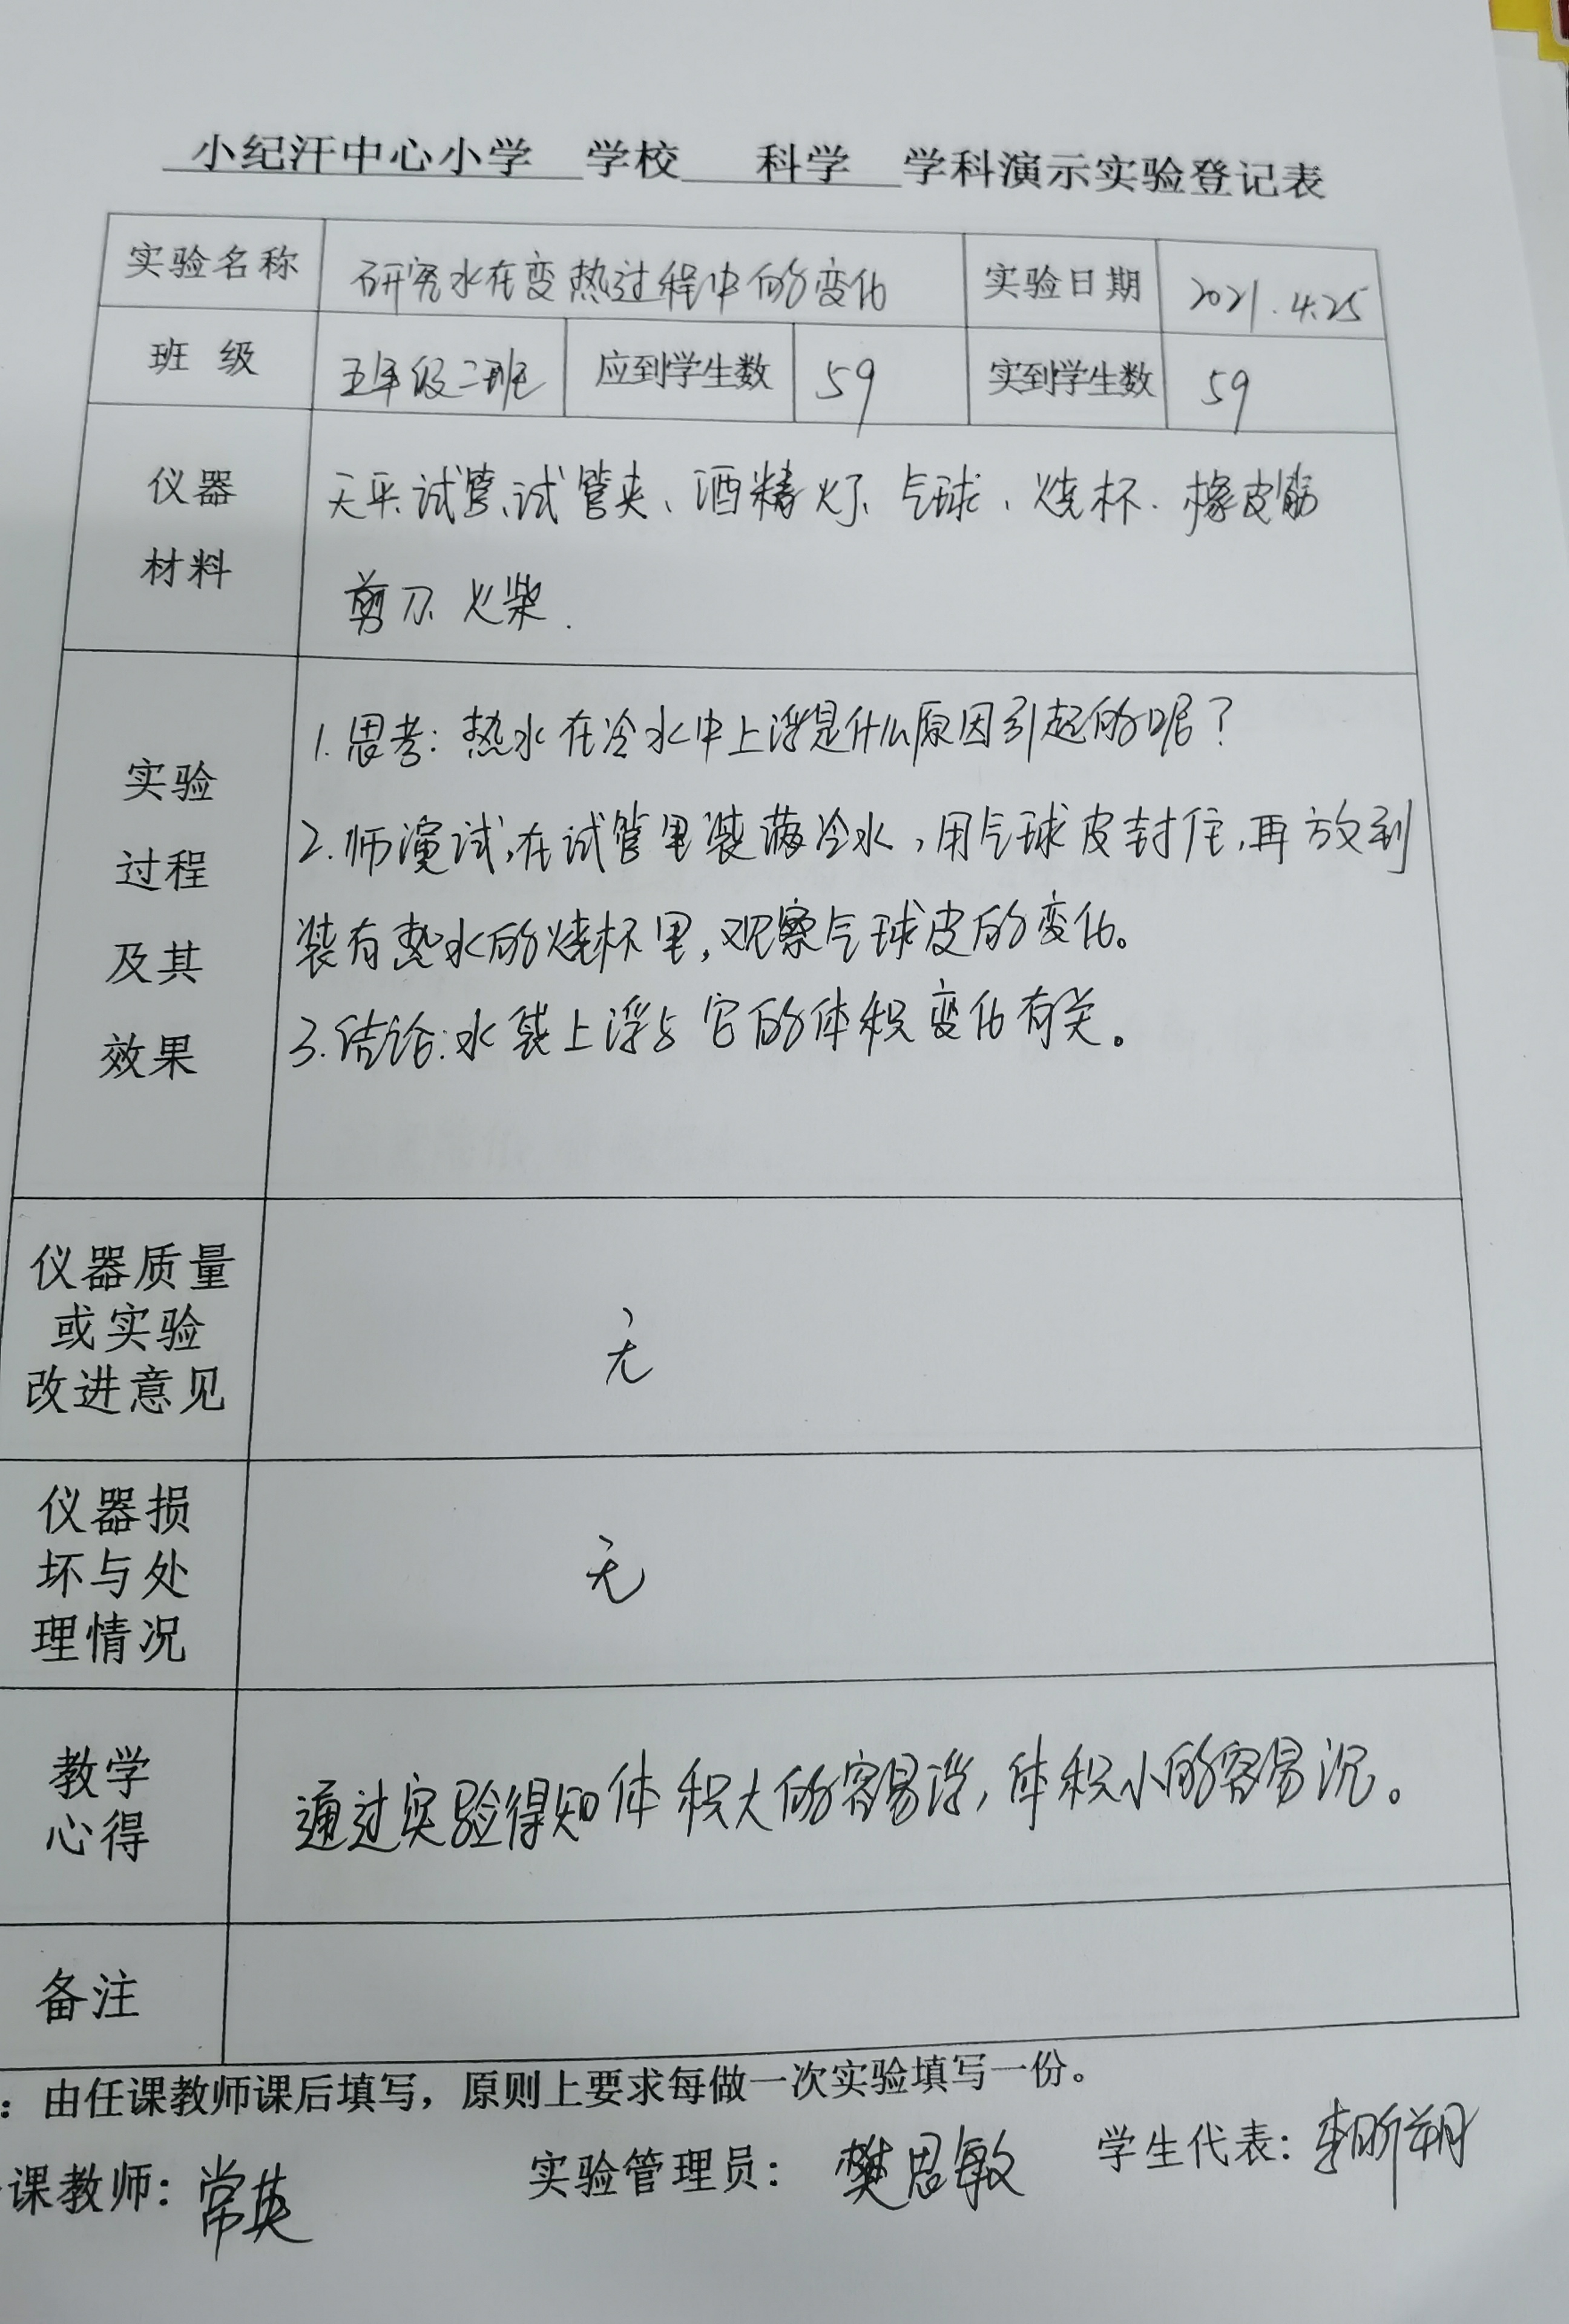 小纪汗中心小学 学校 科学 学科演示实验登记表
实验名称 研究水在变热过程中的变化 实验日期 2021.4.25
班 级 五年级二班 应到学生数 59 实到学生数 59
仪器
材料
天平、试管、试管夹、酒精灯、气球、烧杯、橡皮筋
剪刀、火柴.
实验
过程
及其
效果
1.思考:热水在冷水中上浮是什么原因引起的呢?
2.师演试,在试管里装满冷水,用气球皮封住,再放到
装有热水的烧杯里,观察气球皮的变化。
3.结论:水袋上浮与它的体积变化有关。
仪器质量
或实验
改进意见
无
仪器损
坏与处
理情况
无
教学
心得
通过实验得知体积大的容易浮,体积小的容易沉。
备注
:由任课教师课后填写,原则上要求每做一次实验填写一份。
课教师:常英 实验管理员:樊思敏 学生代表: